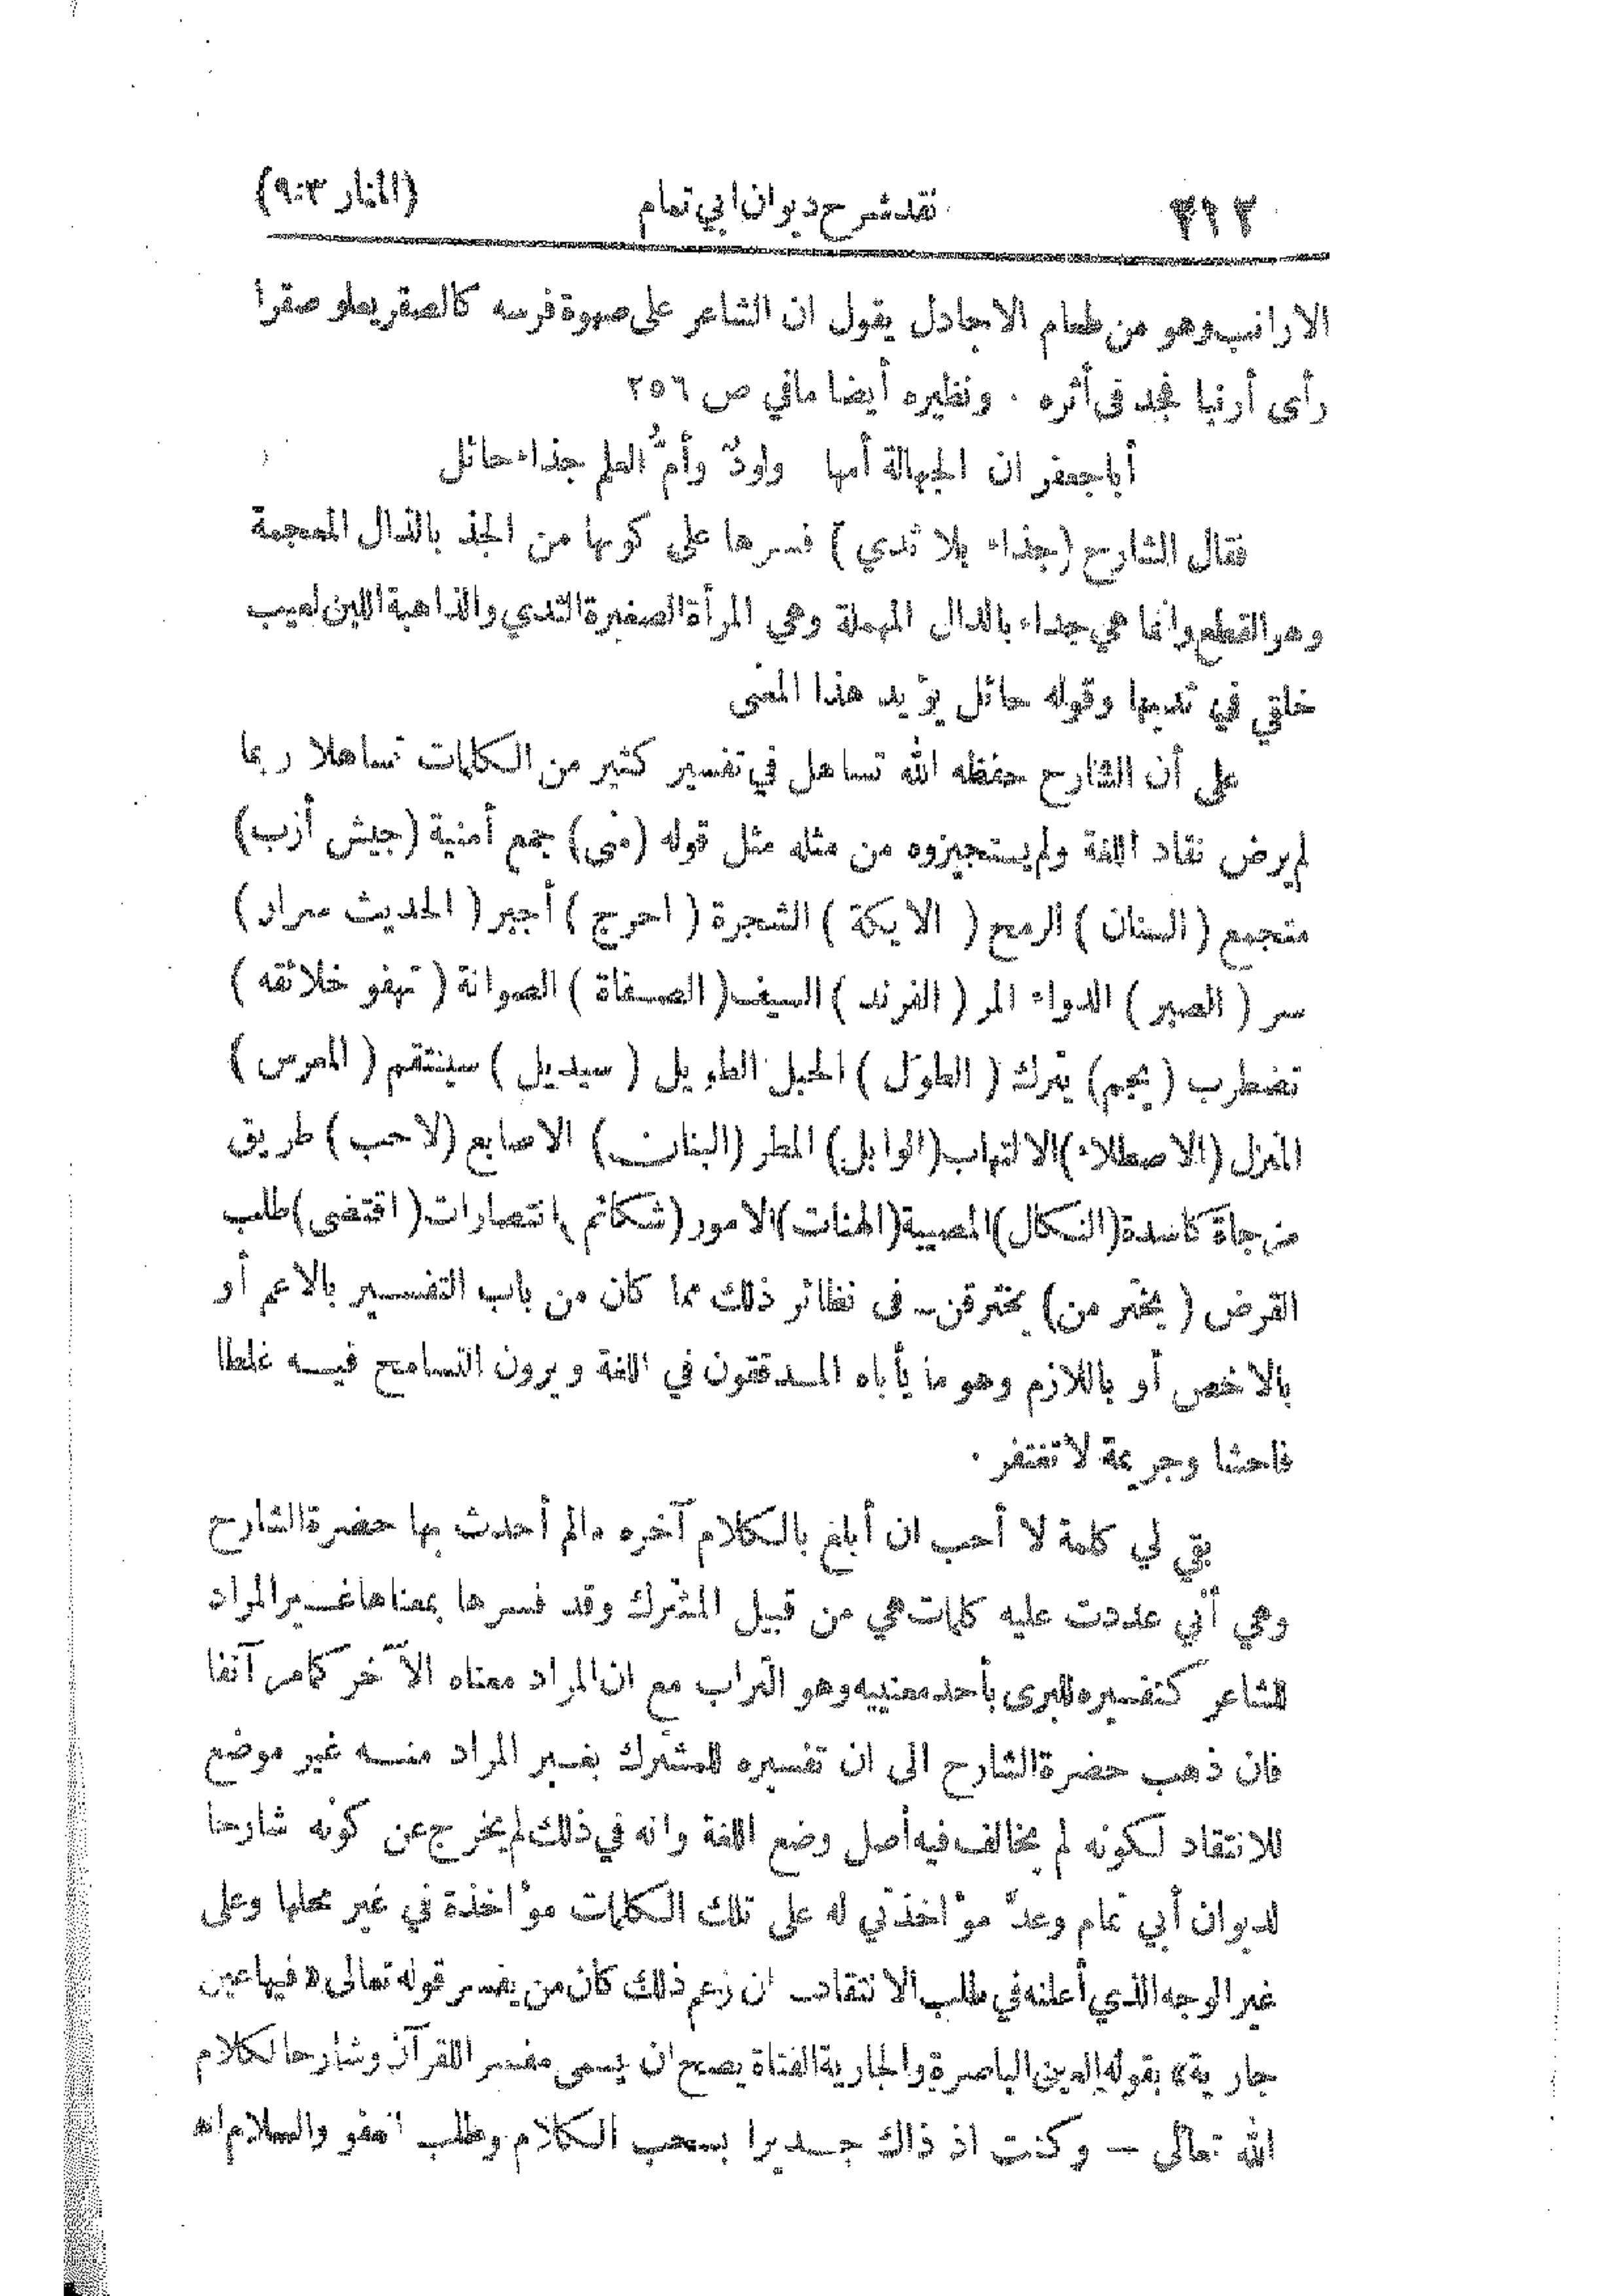 ٢١٢ نقد شرح ديوان ابي تمام (المنار ٩:٣)
الارانب وهو من طعام الاجادل يقول ان الشاعر على صهوة فرسه كالصقر يعلو صقرا
رأى أرنبا فجد في أثره . ونظيره أيضا ما في ص ٢٥٦
أبا جعفر ان الجهالة أمها ولودٌ وأمُّ العلم جذاء حائل
فقال الشارح (جذاء بلا ثدي) فسرها على كونها من الجذ بالذال المعجمة
وهو القطع وانما هي جداء بالدال المهملة وهي المرأة الصغيرة الثدي والذاهبة اللبن لعيب
خلقي في ثديها وقوله حائل يؤيد هذا المعنى
على أن الشارح حفظه الله تساهل في تفسير كثير من الكلمات تساهلا ربما
لم يرض نقاد اللغة ولم يستجيزوه من مثله مثل قوله (منى) جمع أمنية (جيش أزب)
متجمع (السنان) الرمح (الايكة) الشجرة (احرج) أجبر (الحديث سرار)
سر (الصبر) الدواء المر (الفرند) السيف (الصفاة) الصوانة (تهفو خلائقه)
تضطرب (يجم) يترك (الطوَل) الحبل الطويل (سيديل) سينتقم (المعرس)
المنزل (الاصطلاء) الالتهاب (الوابل) المطر (البنان) الاصابع (لاحب) طريق
مزجاة كاسدة (النكال) المصيبة (الهنات) الامور (شكائم) انتصارات (اقتضى) طلب
القرض (يخترمن) يخترقن ـ في نظائر ذلك مما كان من باب التفسير بالاعم أو
بالاخص أو باللازم وهو ما يأباه المدققون في اللغة ويرون التسامح فيه غلطا
فاحشا وجريمة لا تغتفر .
بقي لي كلمة لا أحب ان أبلغ بالكلام آخره مالم أحدث بها حضرة الشارح
وهي أني عددت عليه كلمات هي من قبيل المشترك وقد فسرها بمعناها غير المراد
للشاعر كتفسيره للبرى بأحد معنييه وهو التراب مع ان المراد معناه الآخر كما مر آنفا
فان ذهب حضرة الشارح الى ان تفسيره للمشترك بغير المراد منه غير موضع
للانتقاد لكونه لم يخالف فيه أصل وضع اللغة وانه في ذلك لم يخرج عن كونه شارحا
لديوان أبي تمام وعدَّ مؤاخذتي له على تلك الكلمات مؤاخذة في غير محلها وعلى
غير الوجه الذي أعلنه في طلب الانتقاد ان زعم ذلك كان من يفسر قوله تعالى «فيها عين
جارية» بقوله العين الباصرة والجارية الفتاة يصح ان يسمى مفسر اللقرآن وشارحا لكلام
الله تعالى — وكنت اذ ذاك جديرا بسحب الكلام وطلب العفو والسلام اه